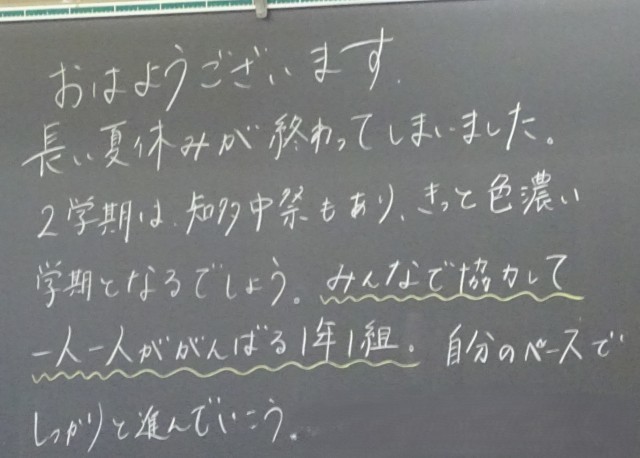 おはようございます.
長い夏休みが終わってしまいました。
2学期は、知多中祭もあり、きっと色濃い
学期となるでしょう。みんなで協力して
一人一人ががんばる1年1組。自分のペースで
しっかりと進んでいこう.